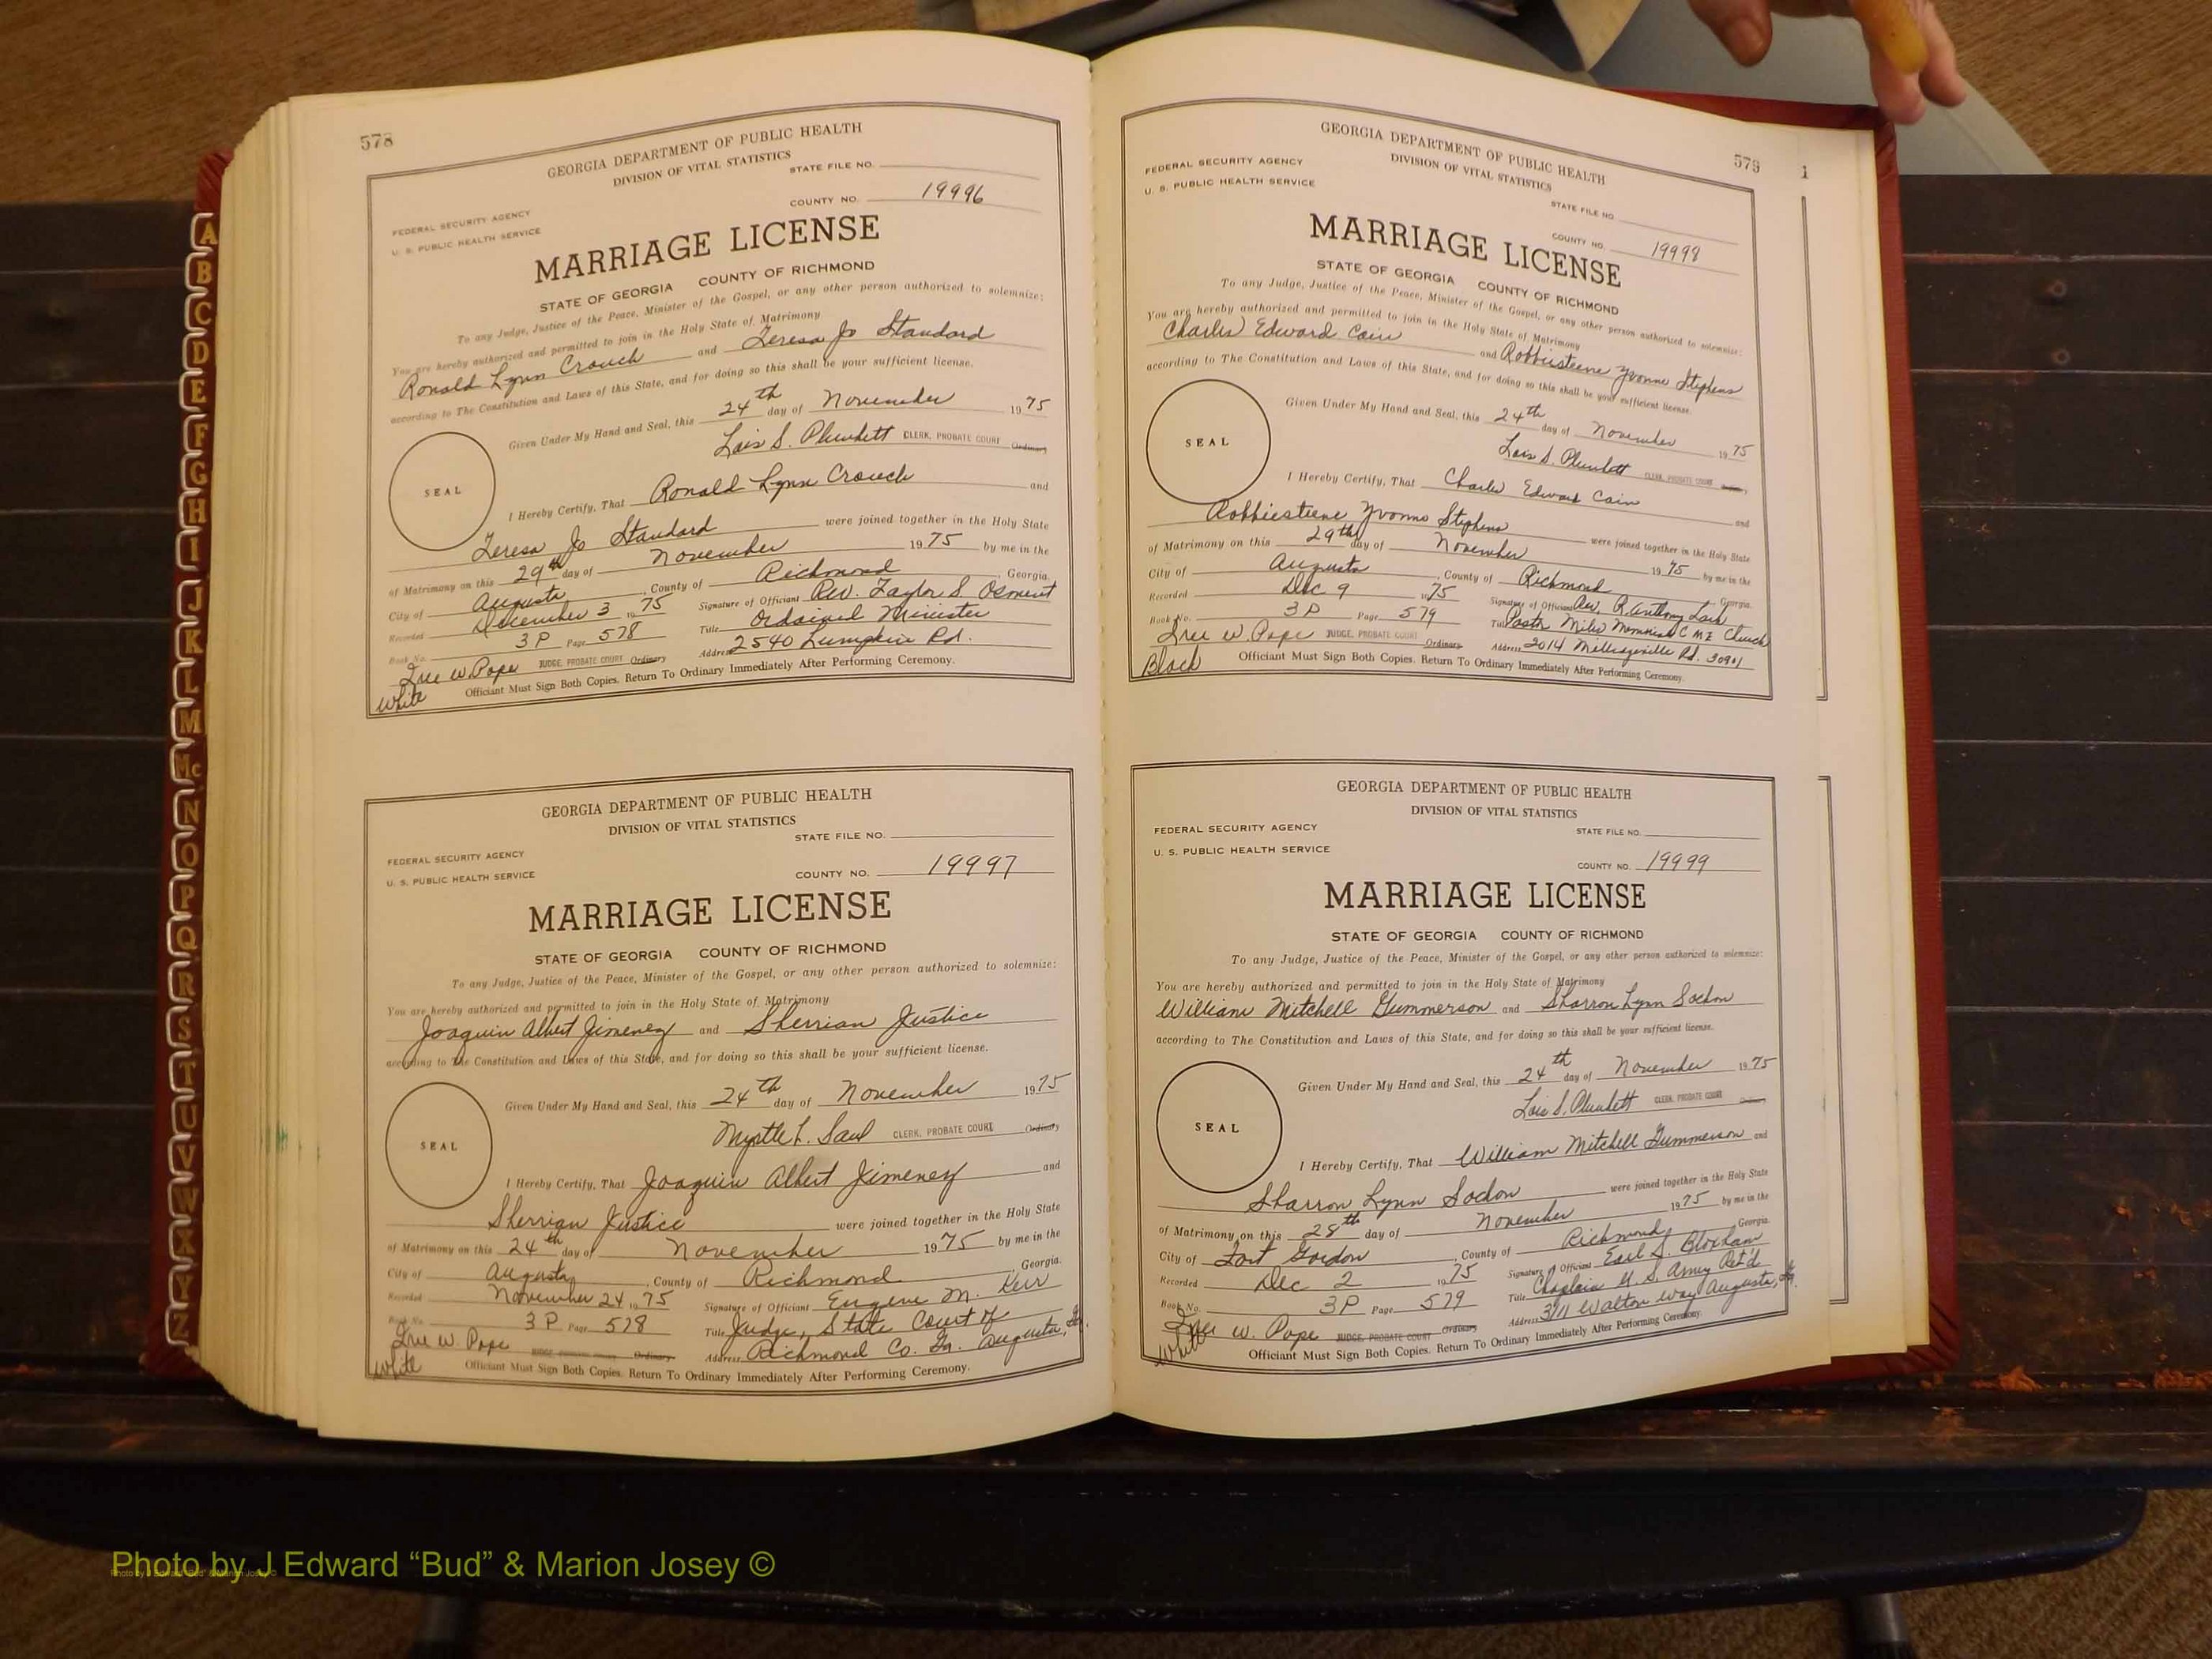 A
B
C
D
E
F
G
H
I
J
K
L
M
Mc
N
O
P
Q
R
S
T
U
V
W
X
Y
Z
578
GEORGIA DEPARTMENT OF PUBLIC HEALTH
DIVISION OF VITAL STATISTICS
STATE FILE NO.
COUNTY NO. 19996
FEDERAL SECURITY AGENCY
U. S. PUBLIC HEALTH SERVICE
MARRIAGE LICENSE
STATE OF GEORGIA COUNTY OF RICHMOND
To any Judge, Justice of the Peace, Minister of the Gospel, or any other person authorized to solemnize:
You are hereby authorized and permitted to join in the Holy State of Matrimony
Ronald Lynn Crouch and Teresa Jo Standard
according to The Constitution and Laws of this State, and for doing so this shall be your sufficient license.
Given Under My Hand and Seal, this 24th day of November 1975
Lois S. Plunkett CLERK, PROBATE COURT Ordinary
SEAL
I Hereby Certify, That Ronald Lynn Crouch and
Teresa Jo Standard were joined together in the Holy State
of Matrimony on this 29th day of November 1975 by me in the
City of Augusta, County of Richmond, Georgia.
Recorded December 3 1975 Signature of Officiant Rev. Taylor S. Osment
Book No. 3P Page 578 Title Ordained Minister
Iree W. Pope JUDGE, PROBATE COURT Ordinary Address 2540 Lumpkin Rd.
White Officiant Must Sign Both Copies. Return To Ordinary Immediately After Performing Ceremony.
GEORGIA DEPARTMENT OF PUBLIC HEALTH
DIVISION OF VITAL STATISTICS
STATE FILE NO.
FEDERAL SECURITY AGENCY
U. S. PUBLIC HEALTH SERVICE
COUNTY NO. 19997
MARRIAGE LICENSE
STATE OF GEORGIA COUNTY OF RICHMOND
To any Judge, Justice of the Peace, Minister of the Gospel, or any other person authorized to solemnize:
You are hereby authorized and permitted to join in the Holy State of Matrimony
Joaquin Albert Jimenez and Sherrian Justice
according to The Constitution and Laws of this State, and for doing so this shall be your sufficient license.
Given Under My Hand and Seal, this 24th day of November 1975
Myrtle L. Saul CLERK, PROBATE COURT Ordinary
SEAL
I Hereby Certify, That Joaquin Albert Jimenez and
Sherrian Justice were joined together in the Holy State
of Matrimony on this 24th day of November 1975 by me in the
City of Augusta, County of Richmond, Georgia.
Recorded November 24 1975 Signature of Officiant Eugene M. Kerr
Book No. 3P Page 578 Title Judge, State Court of
Iree W. Pope Ordinary Address Richmond Co. Ga. Augusta, Ga.
White Officiant Must Sign Both Copies. Return To Ordinary Immediately After Performing Ceremony.
579
GEORGIA DEPARTMENT OF PUBLIC HEALTH
DIVISION OF VITAL STATISTICS
FEDERAL SECURITY AGENCY
U. S. PUBLIC HEALTH SERVICE
STATE FILE NO.
COUNTY NO. 19998
MARRIAGE LICENSE
STATE OF GEORGIA COUNTY OF RICHMOND
To any Judge, Justice of the Peace, Minister of the Gospel, or any other person authorized to solemnize:
You are hereby authorized and permitted to join in the Holy State of Matrimony
Charles Edward Cain and Robbiesteene Yvonne Stephens
according to The Constitution and Laws of this State, and for doing so this shall be your sufficient license.
Given Under My Hand and Seal, this 24th day of November 1975
Lois S. Plunkett CLERK, PROBATE COURT
SEAL
I Hereby Certify, That Charles Edward Cain and
Robbiesteene Yvonne Stephens were joined together in the Holy State
of Matrimony on this 29th day of November 1975 by me in the
City of Augusta, County of Richmond Georgia.
Recorded Dec 9 1975 Signature of Officiant Rev. R. Anthony
Book No. 3P Page 579 Title Pastor Miles C M E Church
Iree W. Pope JUDGE, PROBATE COURT Ordinary Address 2014 Milledgeville Rd. 30901
Black Officiant Must Sign Both Copies. Return To Ordinary Immediately After Performing Ceremony.
GEORGIA DEPARTMENT OF PUBLIC HEALTH
DIVISION OF VITAL STATISTICS
FEDERAL SECURITY AGENCY
STATE FILE NO.
U. S. PUBLIC HEALTH SERVICE
COUNTY NO. 19999
MARRIAGE LICENSE
STATE OF GEORGIA COUNTY OF RICHMOND
To any Judge, Justice of the Peace, Minister of the Gospel, or any other person authorized to solemnize:
You are hereby authorized and permitted to join in the Holy State of Matrimony
William Mitchell Gummerson and Sharron Lynn Sochon
according to The Constitution and Laws of this State, and for doing so this shall be your sufficient license.
Given Under My Hand and Seal, this 24th day of November 1975
Lois S. Plunkett CLERK, PROBATE COURT Ordinary
SEAL
I Hereby Certify, That William Mitchell Gummerson and
Sharron Lynn Sochon were joined together in the Holy State
of Matrimony on this 28th day of November 1975 by me in the
City of Fort Gordon, County of Richmond, Georgia.
Recorded Dec 2 1975 Signature of Officiant Earl S. Bloxham
Book No. 3P Page 579 Title Chaplain U. S. Army Ret'd
Iree W. Pope JUDGE, PROBATE COURT Ordinary Address 3111 Walton Way Augusta, Ga.
White Officiant Must Sign Both Copies. Return To Ordinary Immediately After Performing Ceremony.
1
Photo by J Edward “Bud” & Marion Josey ©
Photo by J Edward "Bud" & Marion Josey ©